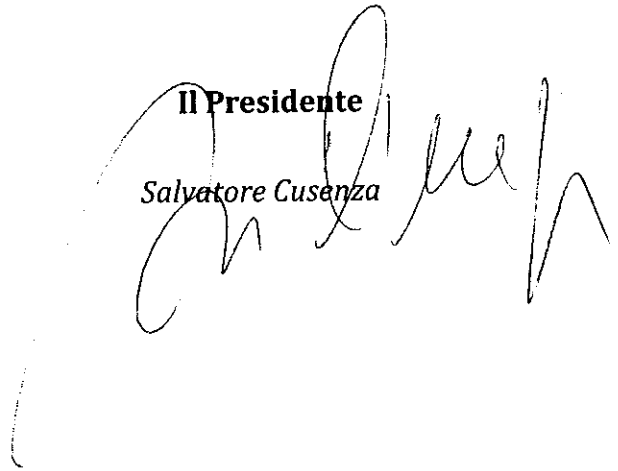 Il Presidente
Salvatore Cusenza